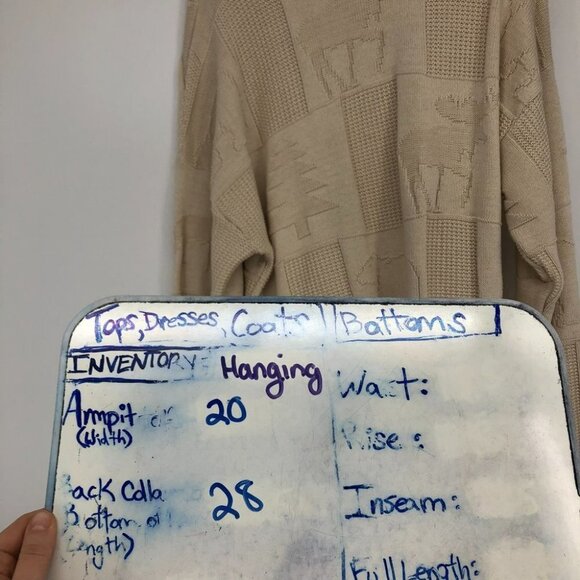 Tops, Dresses, Coats
Bottoms
INVENTORY Hanging
Armpit 20
(Width)
ack Colla 28
ottom o
ngth)
Wa t:
Rise:
Inseam:
Full Length: